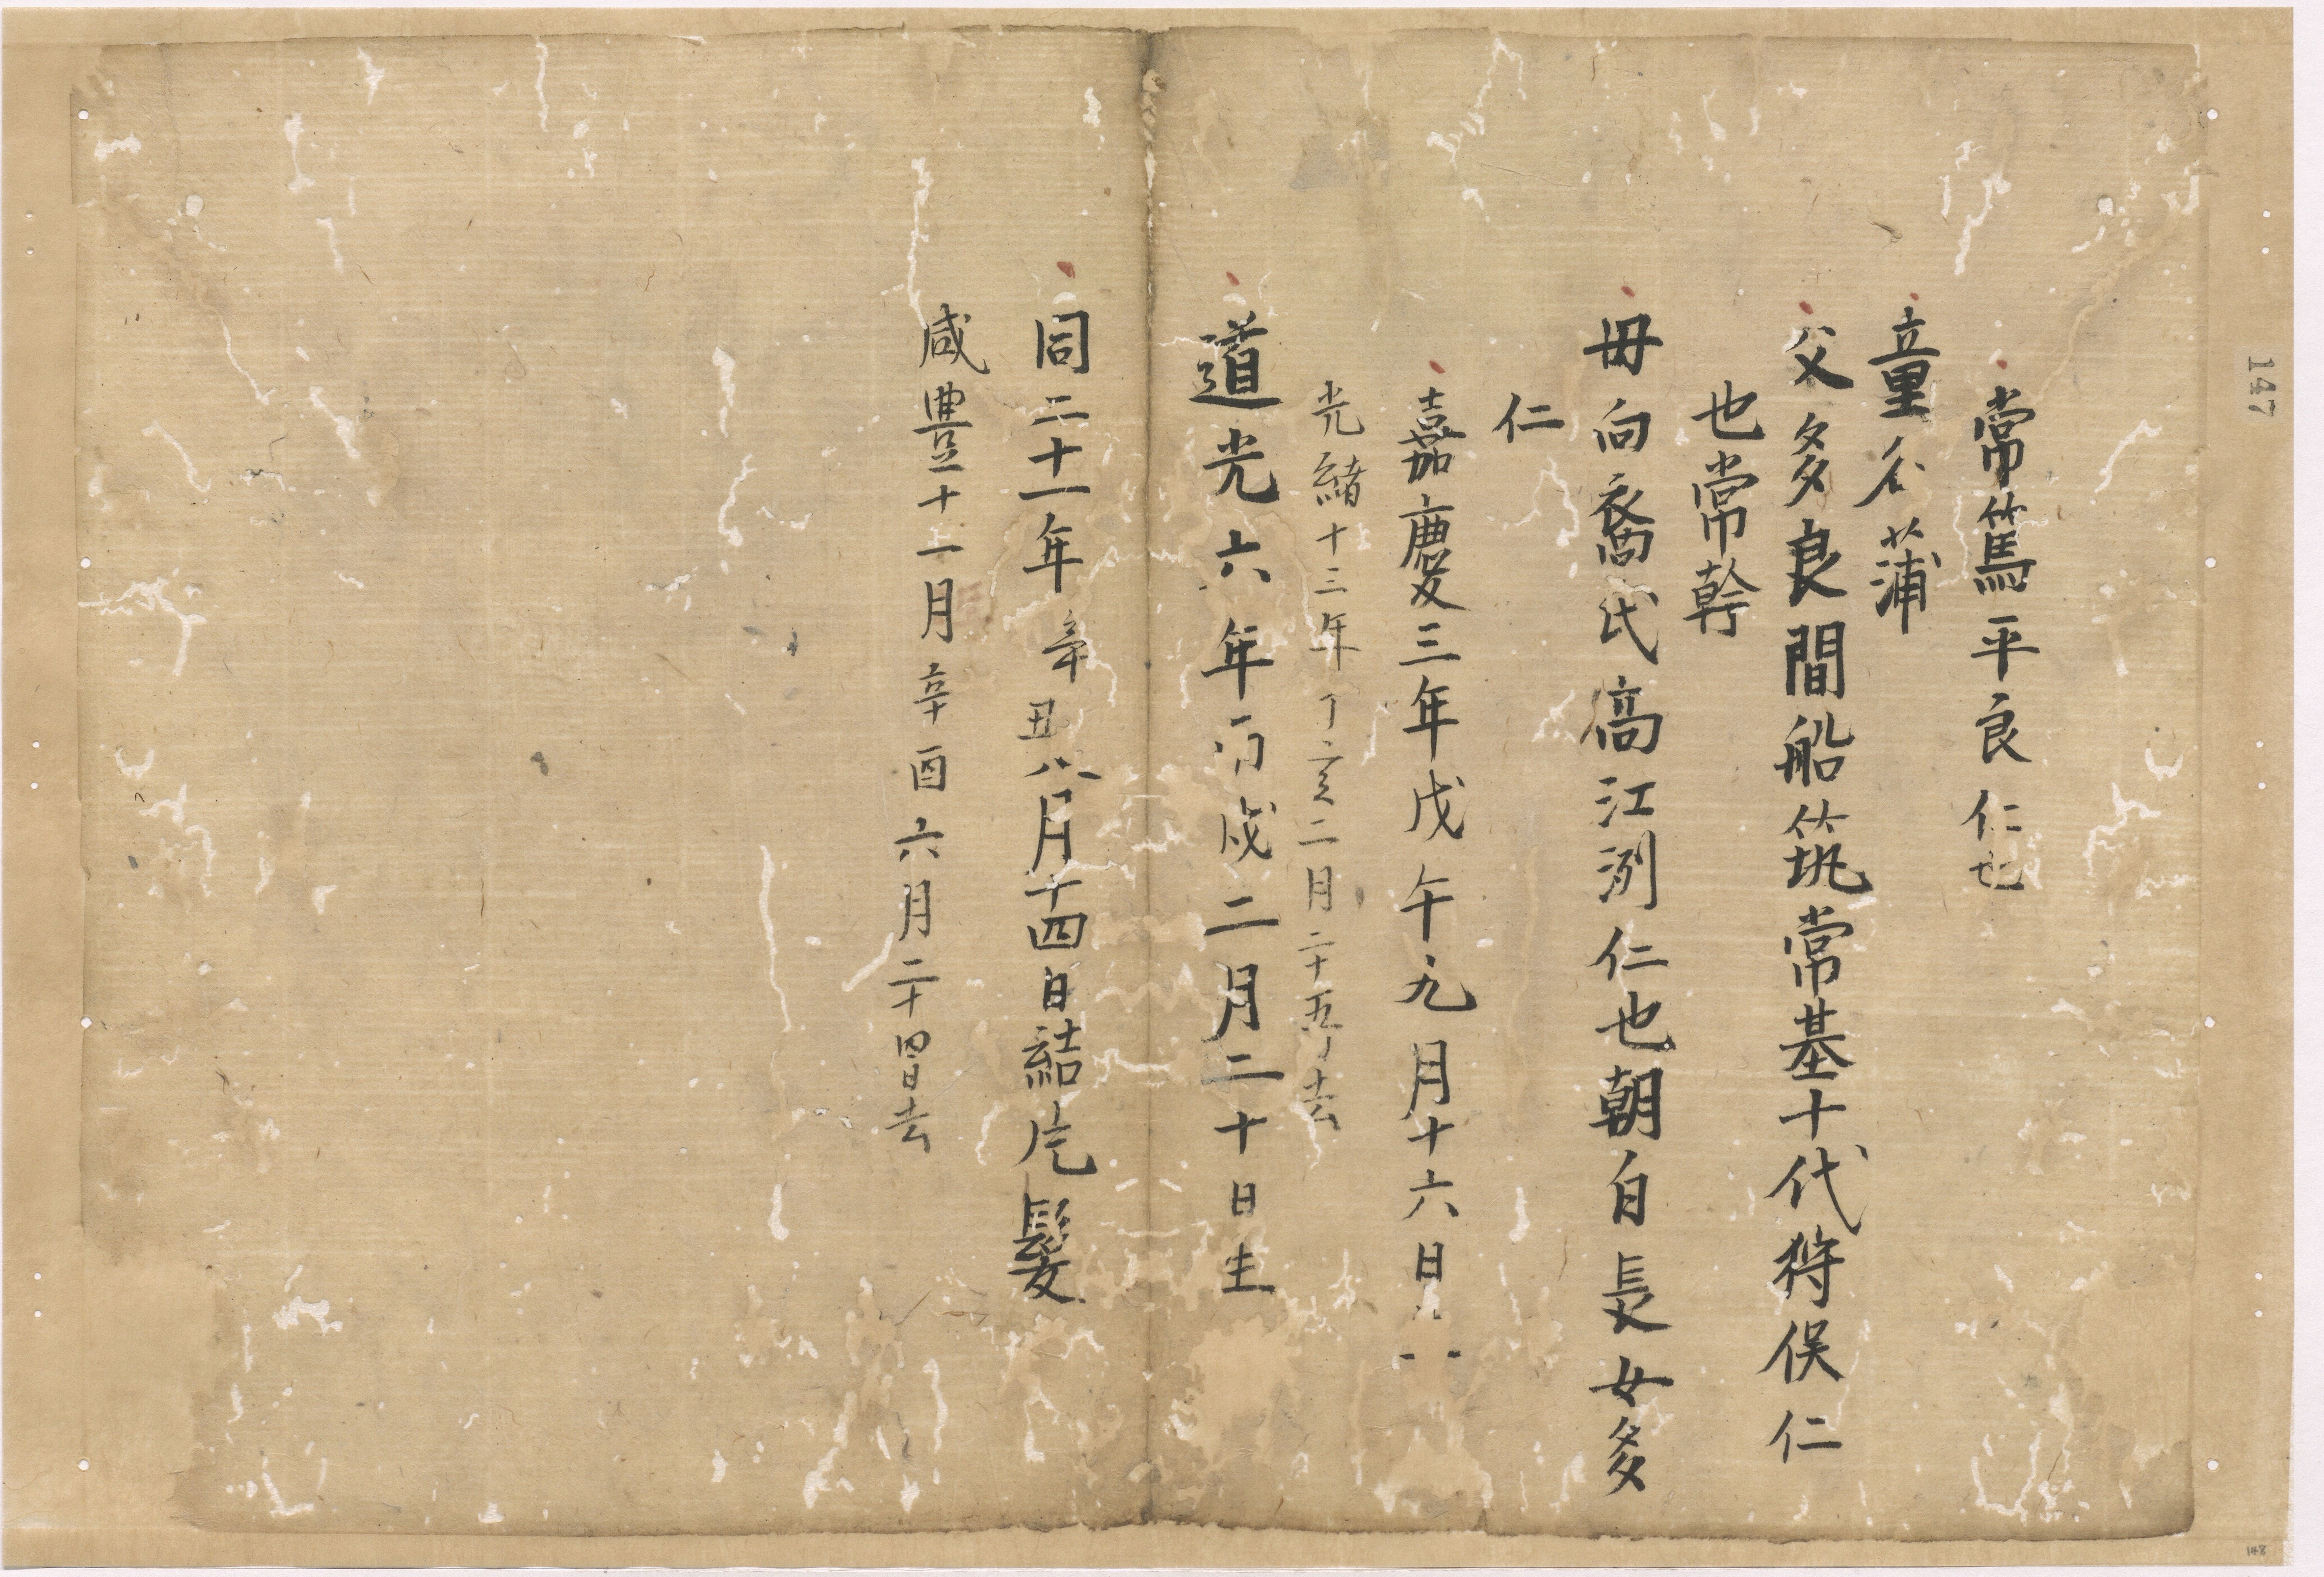 常篤平良仁也
童名蒲
父多良間船筑常基十代狩俣仁
也常幹
母向裔氏高江洌仁也朝自長女多
仁
嘉慶三年戊午九月十六日
光緒十三年丁亥二月二十五日去
道光六年丙戌二月二十日生
同二十一年辛丑八月十四日結片髪
咸豊十一月辛酉六月二十四日去
147
148